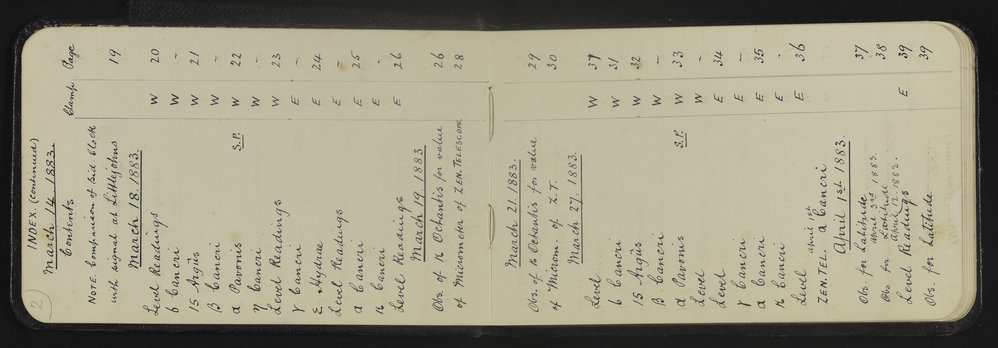 2
INDEX. (continued)
March 14. 1883.
Contents Clamp. Page
NOTE. Comparison of Sid. Clock
with signal at Littlejohns 19
March 18. 1883.
Level Readings W 20
b Cancri W -
15 Argûs W 21
β Cancri W -
α Pavonis S.P. W 22
η Cancri W -
Level Readings W 23
γ Cancri E -
ε Hydrae E 24
Level Readings E -
α Cancri E 25
κ Cancri E -
Level Readings E 26
March 19. 1883
Obs. of κ Octantis for value 26
of Micrometer of ZEN. TELESCOPE 28
March 21. 1883.
Obs. of κ Octantis for value 29
of Microm. of Z.T. 30
March 27. 1883.
Level W 31
b Cancri W 31
15 Argûs W 32
β Cancri W -
α Pavonis S.P. W 33
Level W -
Level E 34
γ Cancri E -
α Cancri E 35
κ Cancri E -
Level E 36
April 1st
ZEN. TEL. α Cancri
April 1st 1883
Obs. for Latitude 37
April 3rd 1883.
Obs for Latitude 38
April 12. 1883.
Level Readings E 39
Obs. for Latitude 39